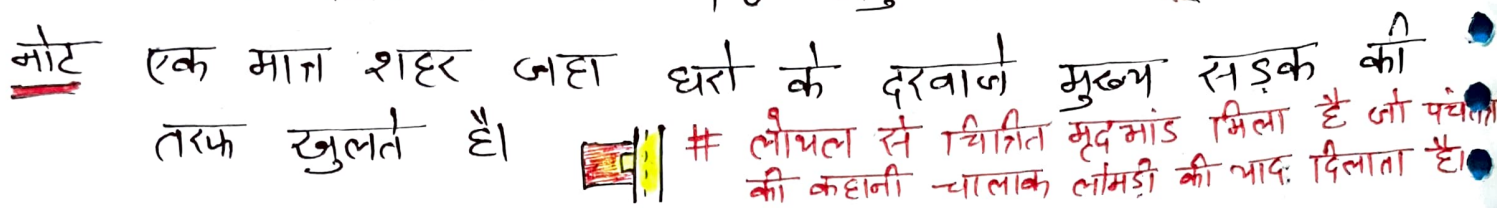 नोट एक मात्र शहर जहा घरो के दरवाजे मुख्य सड़क की
तरफ खुलते है।
# लोथल से चित्रित मृदभांड मिला है जो पंचतंत्र
की कहानी चालाक लोमड़ी की याद दिलाता है।